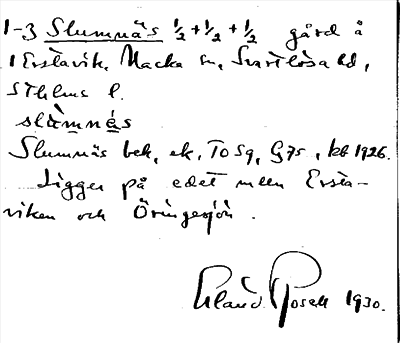 1-3 Slumnäs ½+½+½ gård å
1 Erstavik, Nacka sn, Svartlösa hd,
Sthlms l.
slùmnés
Slumnäs bek, ek, To Sg, G 75, kb 1926.
Ligger på edet mlln Ersta-
viken och Öringesjön.
Rosell 1930.